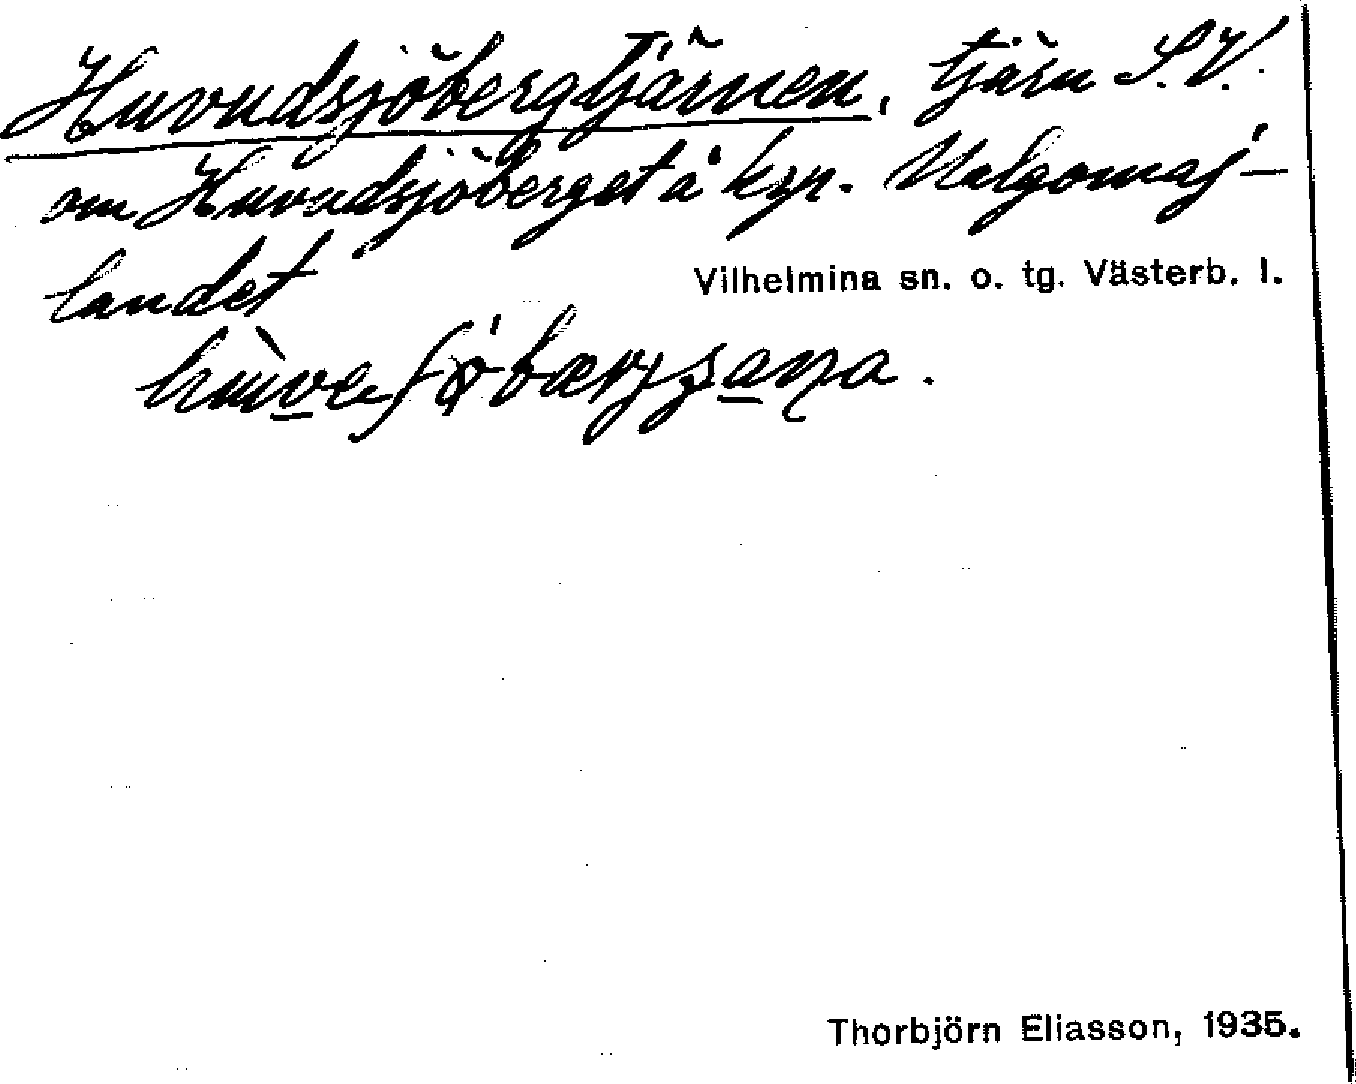 Huvudsjöbergtjärnen, tjärn S.V.
om Huvudsjöberget å kpn. Malgomaj-
landet
Vilhelmina sn. o. tg. Västerb. l.
Thorbjörn Eliasson, 1935.